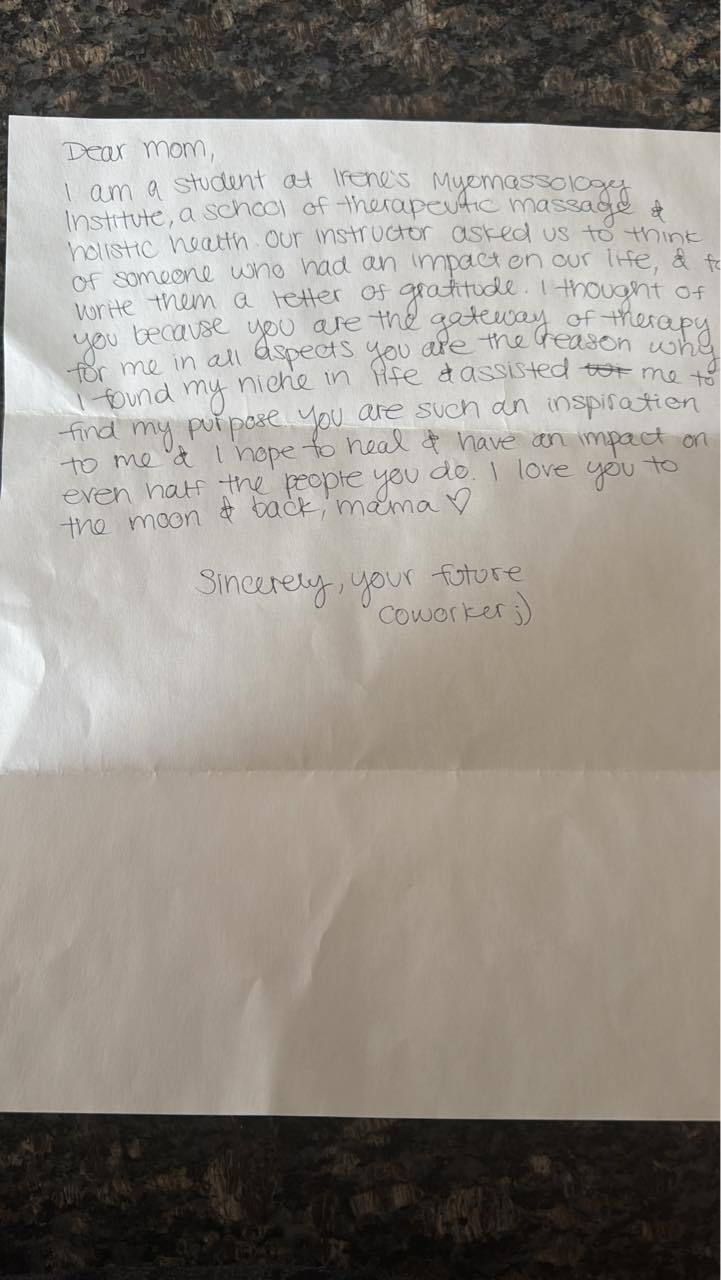 Dear mom,
I am a student at Irene's Myomassology
Institute, a school of therapeutic massage &
holistic health. Our instructor asked us to think
of someone who had an impact on our life, & to
write them a letter of gratitude. I thought of
you because you are the gateway of therapy
for me in all aspects you are the reason why
I found my niche in life & assisted me to
find my purpose. you are such an inspiration
to me & I hope to heal & have an impact on
even half the people you do. I love you to
the moon & back, mama ♡
Sincerely, your future
coworker ;)